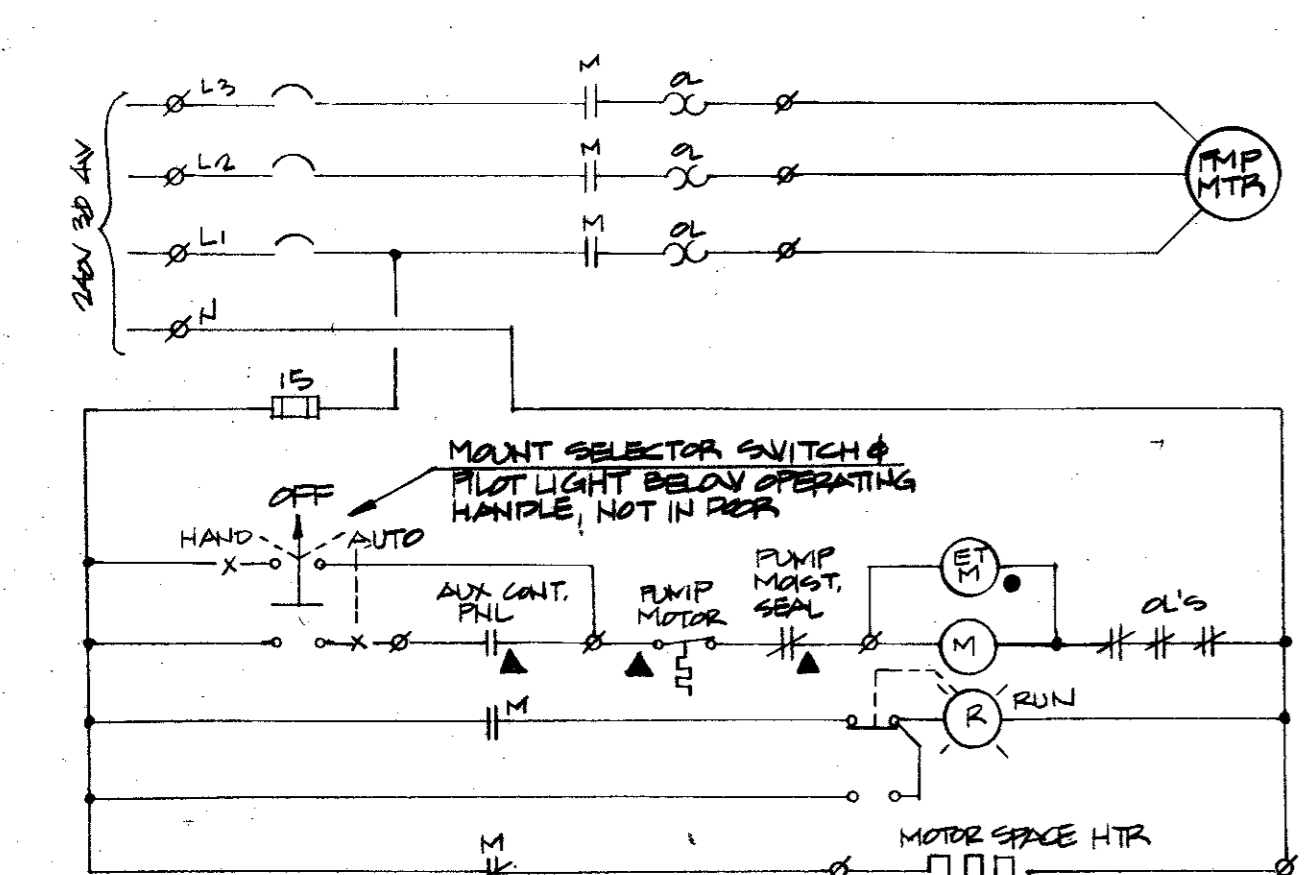 M
OL
L3
M
OL
L2
PMP
MTR
M
OL
L1
240V 3Ø 4W
N
15
MOUNT SELECTOR SWITCH &
PILOT LIGHT BELOW OPERATING
HANDLE, NOT IN DOOR
OFF
HAND
AUTO
X
AUX CONT.
PNL
PUMP
MOTOR
PUMP
MOIST.
SEAL
ET
M
OL'S
X
M
M
R
RUN
M
MOTOR SPACE HTR